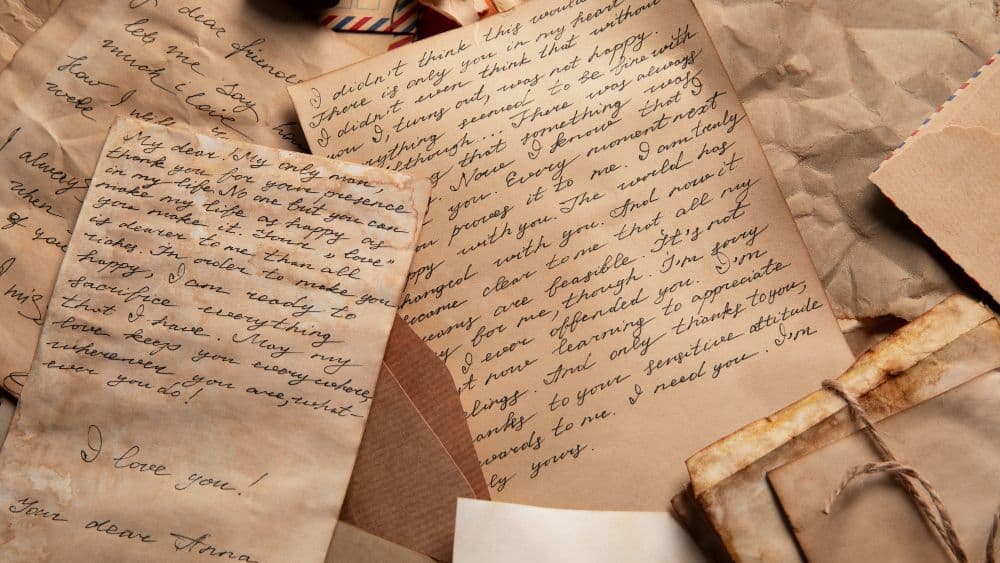 dear friend
let me say
much I love
How I
were
I always
when
of you
I
mis
My dear! My only man,
thank you for your presence
in my life. No one but you can
make my life as happy as
you make it. Your "love"
is dearer to me than all
riches. In order to make you
happy, I am ready to
sacrifice everything
that I have. May my
love keeps you everywhere,
wherever you are, what-
ever you do!
I love you!
Your dear Anna
I didn't think this would
There is only you in my heart
I didn't even think that without
you I, turns out, was not happy.
everything seemed to be fine with
although... There was always
that something was
Now I know that I
you. Every moment next
you proves it to me. I am truly
happy with you. The world has
changed with you. And now it
became clear to me that all my
dreams are feasible. It's not
for me, though. I'm sorry
I ever offended you. I'm
now learning to appreciate
feelings. And only thanks to you,
thanks to your sensitive attitude
towards to me. I need you. I'm
yours.